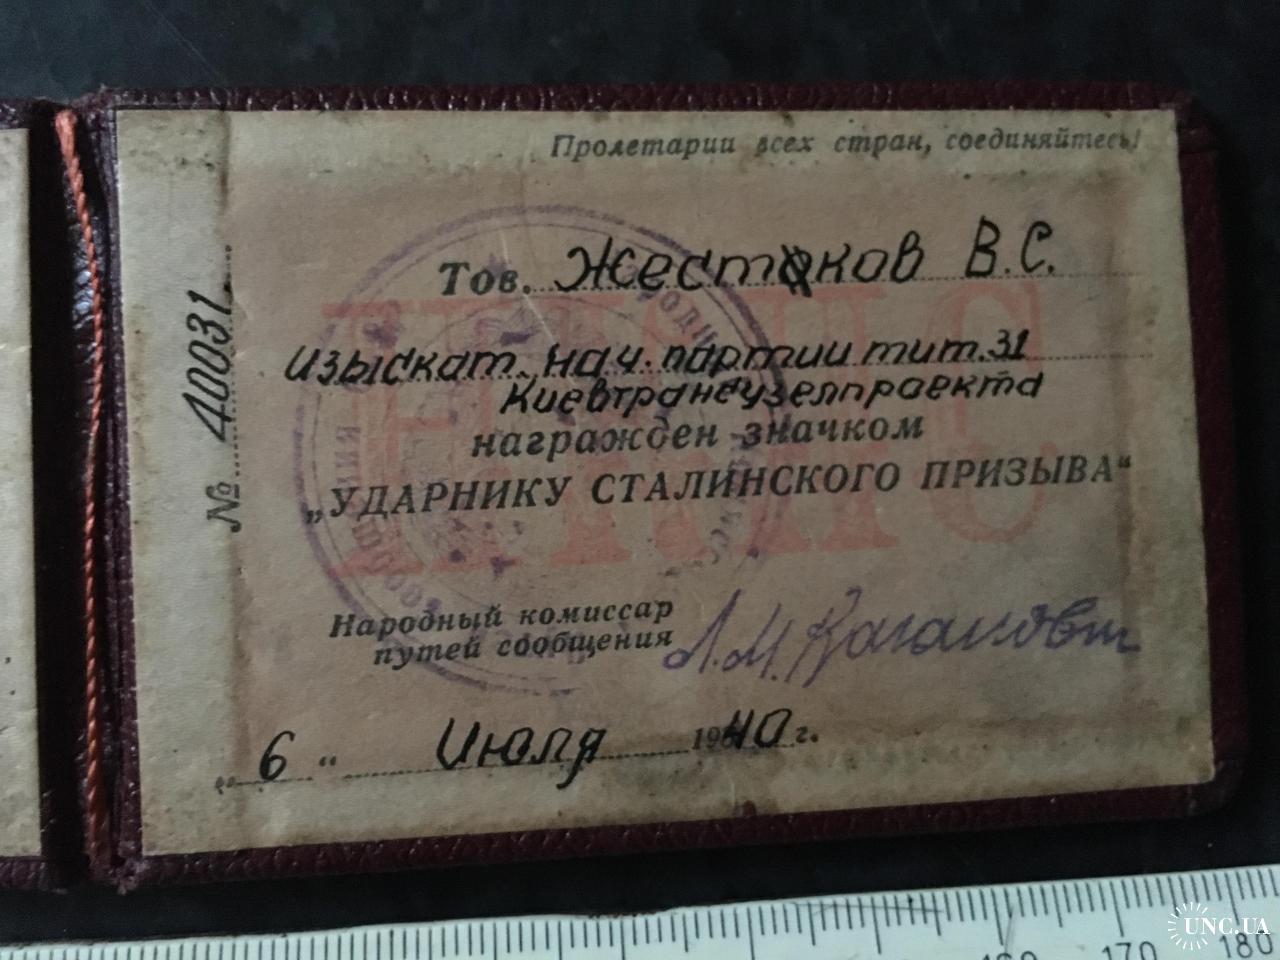 Пролетарии всех стран, соединяйтесь!
№ 40031
Тов. Жестков В.С.
изыскат. нач. партии тит. 31
Киевтрансузелпроекта
награжден значком
„УДАРНИКУ СТАЛИНСКОГО ПРИЗЫВА“
НКПС
Народный комиссар
путей сообщения
Л.М. Каганович
„ 6 “ Июля 1940 г.
160 170 180
UNC.UA